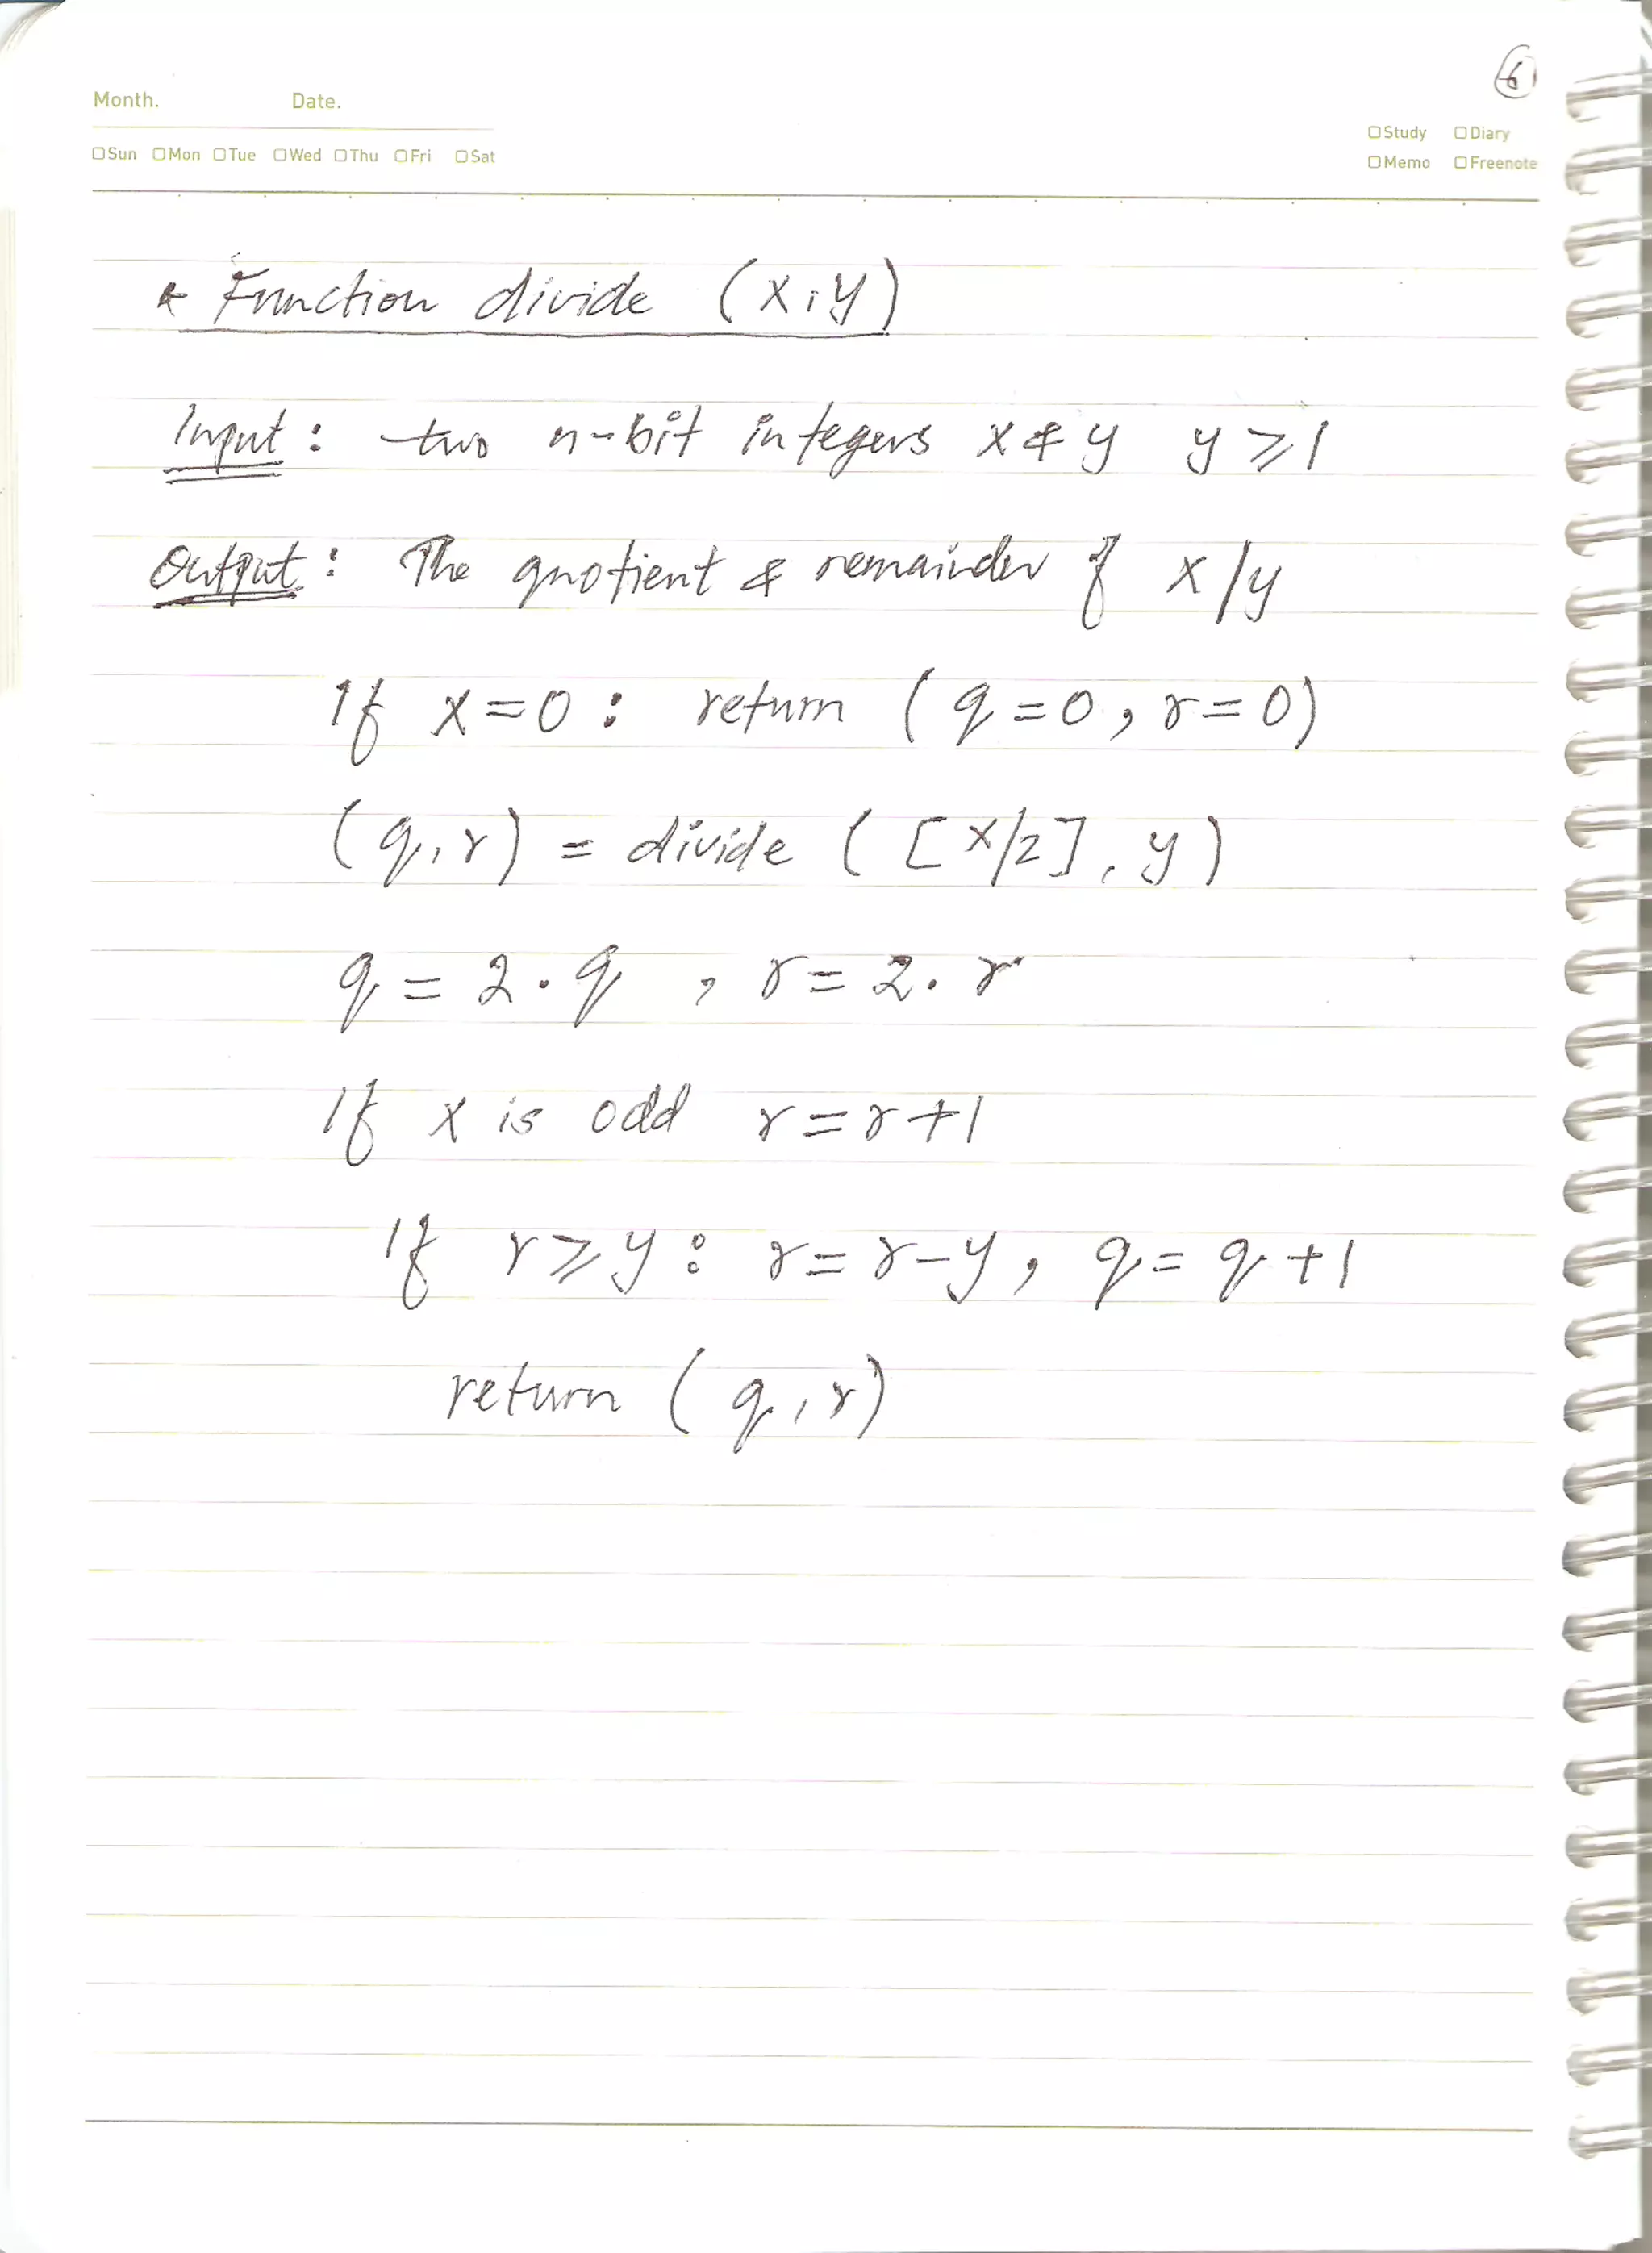 6
Month. Date.
□Study □Diary
□Sun □Mon □Tue □Wed □Thu □Fri □Sat
□Memo □Freenote
* Function divide (x,y)
Input: two n-bit integers x & y y ≥ 1
Output: The quotient & remainder of x/y
If x = 0: return (q = 0, r = 0)
(q,r) = divide ([x/2], y)
q = 2·q, r = 2·r
If x is odd r = r+1
If r ≥ y: r = r-y, q = q+1
return (q,r)